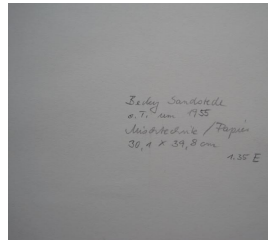 Becky Sandstede
o.T. um 1955
Mischtechnik / Papier
36,1 x 39,8 cm
1.35 E